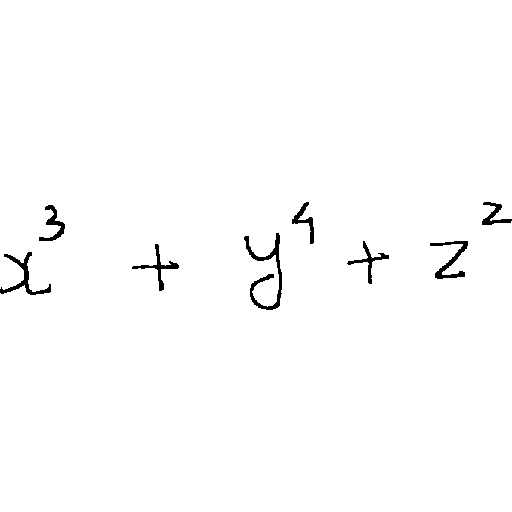 x³ + y⁴ + z²